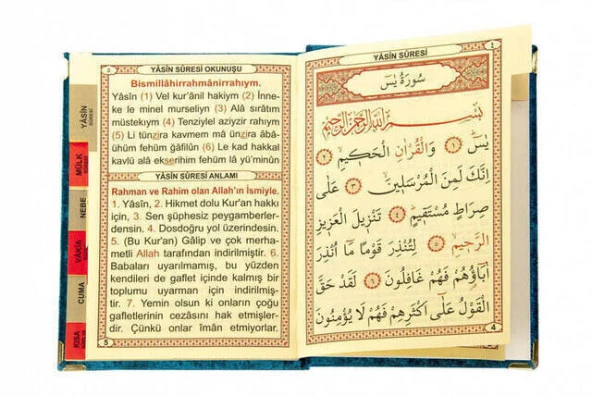 YÂSİN SÛRESİ
1
سُورَةُ يٰسٓ
بِسْمِ اللّٰهِ الرَّحْمٰنِ الرَّحِيمِ
يٰسٓ ﴿١﴾ وَالْقُرْاٰنِ الْحَكِيمِ ﴿٢﴾
اِنَّكَ لَمِنَ الْمُرْسَلِينَ ﴿٣﴾ عَلٰى
صِرَاطٍ مُسْتَقِيمٍ ﴿٤﴾ تَنْزِيلَ الْعَزِيزِ
الرَّحِيمِ ﴿٥﴾ لِتُنْذِرَ قَوْمًا مَٓا اُنْذِرَ
اٰبَٓاؤُ۬هُمْ فَهُمْ غَافِلُونَ ﴿٦﴾ لَقَدْ حَقَّ
الْقَوْلُ عَلٰٓى اَكْثَرِهِمْ فَهُمْ لَا يُؤْمِنُونَ
4
YÂSİN SÛRESİ OKUNUŞU
Bismillâhirrahmânirrahıym.
Yâsîn (1) Vel kur'ânil hakiym (2) İnne-
ke le minel murseliyn (3) Alâ sırâtım
müstekıym (4) Tenziylel aziyzir rahıym
(5) Li tünzira kavmem mâ ünzira âbâ-
ühüm fehüm ğâfilûn (6) Le kad hakkal
kavlü alâ ekserihim fehüm lâ yü'minûn
YÂSİN SÛRESİ ANLAMI
Rahman ve Rahim olan Allah'ın İsmiyle.
1. Yâsîn, 2. Hikmet dolu Kur'an hakkı
için, 3. Sen şüphesiz peygamberler-
densin. 4. Dosdoğru yol üzerindesin.
5. (Bu Kur'an) Gâlip ve çok merha-
metli Allah tarafından indirilmiştir. 6.
Babaları uyarılmamış, bu yüzden
kendileri de gaflet içinde kalmış bir
toplumu uyarman için indirilmiş-
tir. 7. Yemin olsun ki onların çoğu
gafletlerinin cezasını hak etmişler-
dir. Çünkü onlar îmân etmiyorlar.
5
YÂSİN
SÛRESİ
MÜLK
NEBE
VÂKIA
CUMA
KISA